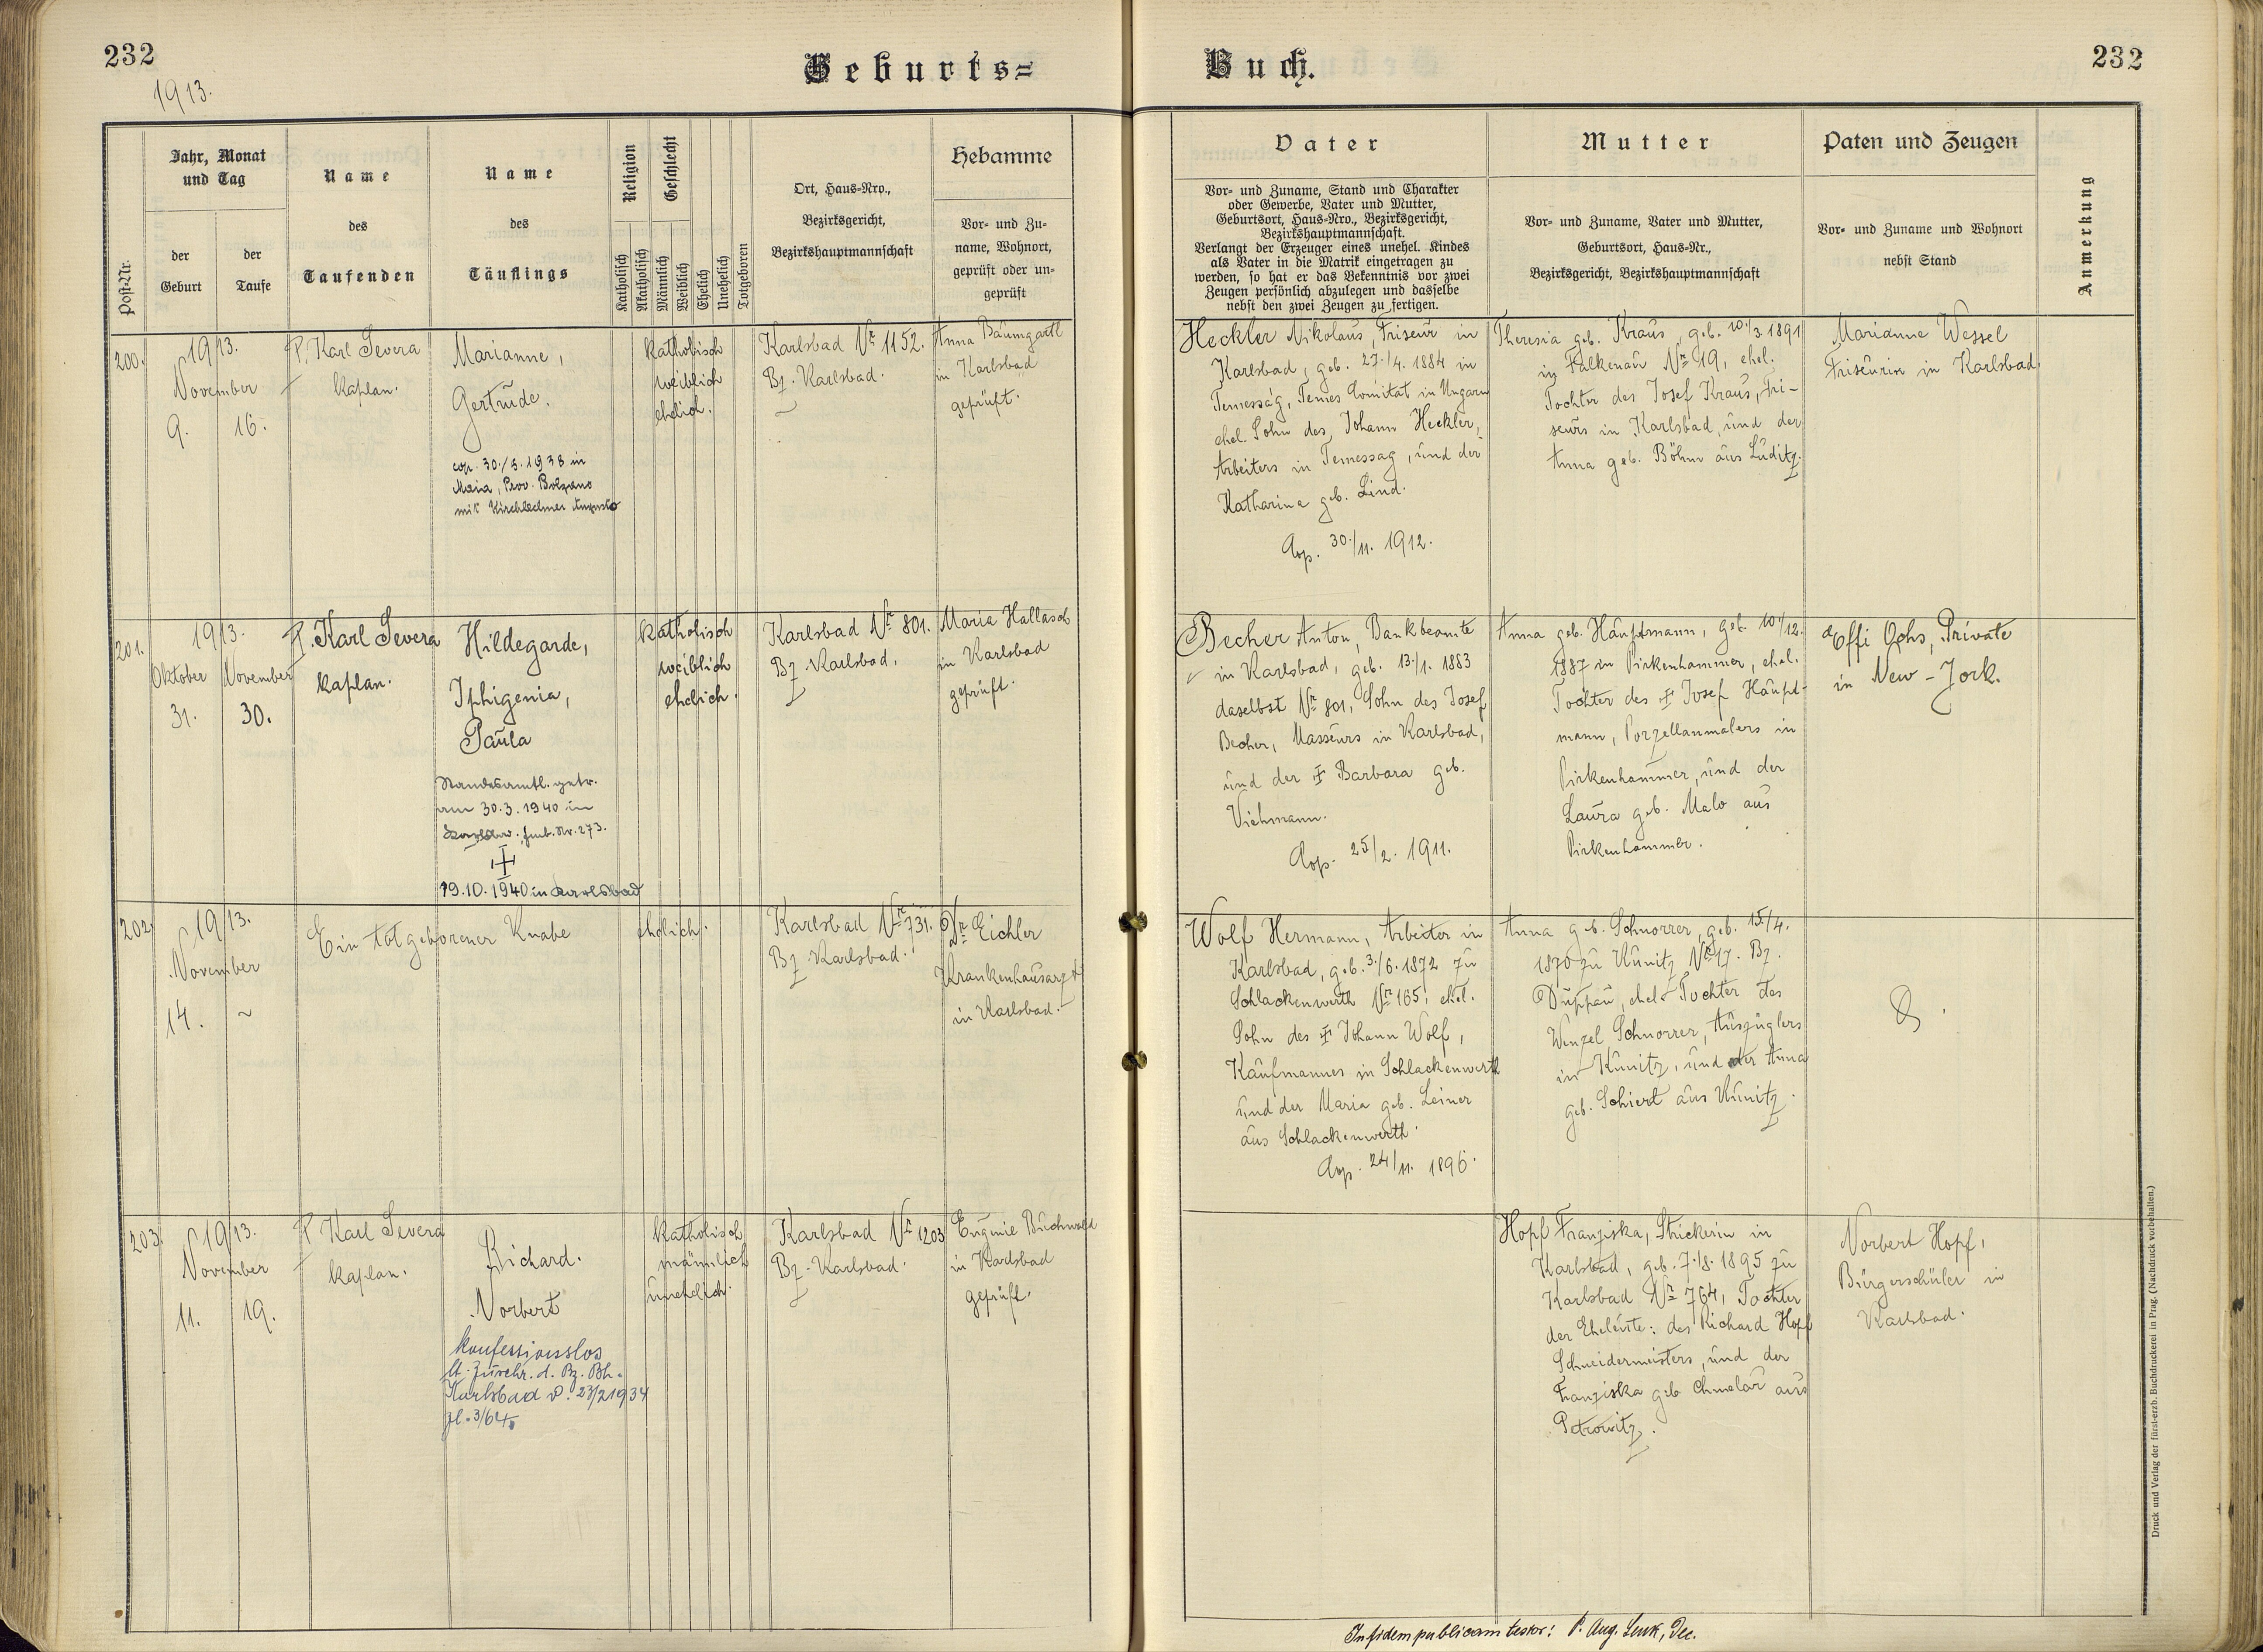 232
1913.
Geburts=
Buch.
232
Post-Nr.
Jahr, Monat
und Tag
der
Geburt
der
Taufe
Name
des
Taufenden
Name
des
Täuflings
Religion
Katholisch
Akatholisch
Geschlecht
Männlich
Weiblich
Ehelich
Unehelich
Totgeboren
Ort, Haus-Nro.,
Bezirksgericht,
Bezirkshauptmannschaft
Hebamme
Vor- und Zu-
name, Wohnort,
geprüft oder un-
geprüft
Vater
Vor- und Zuname, Stand und Charakter
oder Gewerbe, Vater und Mutter,
Geburtsort, Haus-Nro., Bezirksgericht,
Bezirkshauptmannschaft.
Verlangt der Erzeuger eines unehel. Kindes
als Vater in die Matrik eingetragen zu
werden, so hat er das Bekenntnis vor zwei
Zeugen persönlich abzulegen und dasselbe
nebst den zwei Zeugen zu fertigen.
Mutter
Vor- und Zuname, Vater und Mutter,
Geburtsort, Haus-Nr.,
Bezirksgericht, Bezirkshauptmannschaft
Paten und Zeugen
Vor- und Zuname und Wohnort
nebst Stand
Anmerkung
200.
1913.
November
9. 16.
P. Karl Severa
Kaplan.
Marianne,
Gertrude.
cop. 30./5. 1938 in
Maia, Prov. Bolzano
mit Kirchlechner Augusto
katholisch
weiblich
ehelich.
Karlsbad Nr 1152.
Bz. Karlsbad.
Anna Baumgartl
in Karlsbad
geprüft.
Heckler Nikolaus, Friseur in
Karlsbad, geb. 27./4. 1884 in
Temesság, Temes Comitat in Ungarn
ehel. Sohn des Johann Heckler,
Arbeiters in Temessag, und der
Katharina geb. Lind.
Cop. 30./11. 1912.
Theresia geb. Kraus, geb. 10./3. 1891
in Falkenau Nr 19, ehel.
Tochter des Josef Kraus, Fri-
seurs in Karlsbad, und der
Anna geb. Böhm aus Luditz.
Marianne Wessel
Friseurin in Karlsbad
201.
1913.
Oktober November
31. 30.
P. Karl Severa
Kaplan.
Hildegarde,
Iphigenia,
Paula
Standesamtl. getr.
am 30.3.1940 in
Fmb. Nr. 273.
19.10.1940 in Karlsbad
katholisch
weiblich
ehelich.
Karlsbad Nr 801.
Bz. Karlsbad.
Maria Hallasch
in Karlsbad
geprüft.
Becher Anton, Bankbeamte
in Karlsbad, geb. 13./1. 1883
daselbst Nr 801, Sohn des Josef
Becher, Masseurs in Karlsbad,
und der † Barbara geb.
Viehmann.
Cop. 25/2. 1911.
Anna geb. Hauptmann, geb. 10./12.
1887 in Pirkenhammer, ehel.
Tochter des † Josef Haupt-
mann, Porzellanmalers in
Pirkenhammer, und der
Laura geb. Malo aus
Pirkenhammer.
Effi Ochs, Private
in New-York.
202.
1913.
November
14. ~
Ein totgeborener Knabe
ehelich.
Karlsbad Nr 731.
Bz. Karlsbad.
Dr Eichler
Krankenhausarzt
in Karlsbad.
Wolf Hermann, Arbeiter in
Karlsbad, geb. 3./6. 1872 zu
Schlackenwerth Nr 165, ehel.
Sohn des † Johann Wolf,
Kaufmannes in Schlackenwerth
und der Maria geb. Leiner
aus Schlackenwerth.
Cop. 24/11. 1896.
Anna geb. Schnorrer, geb. 15/4.
1870 zu Kunitz Nr 17. Bz.
Duppau, ehel. Tochter des
Wenzel Schnorrer, Auszüglers
in Kunitz, und der Anna
geb. Schierl aus Kunitz.
203.
1913.
November
11. 19.
P. Karl Severa
Kaplan.
Richard.
Norbert
konfessionslos
lt. Zuschr. d. Bz. Bh.
Karlsbad v. 23/2 1934
Zl. 3/64.
katholisch
männlich
unehelich.
Karlsbad Nr 1203
Bz. Karlsbad.
Eugenie Buchwald
in Karlsbad
geprüft.
Hopf Franziska, Strickerin in
Karlsbad, geb. 7./8. 1895 zu
Karlsbad Nr 764, Tochter
der Eheleute: des Richard Hopf
Schneidermeisters, und der
Franziska geb. Chmelař aus
Petrowitz.
Norbert Hopf,
Bürgerschüler in
Karlsbad.
In fidem publicam testor: P. Aug. Lenk, Dec.
Druck und Verlag der fürst-erzb. Buchdruckerei in Prag. (Nachdruck vorbehalten.)